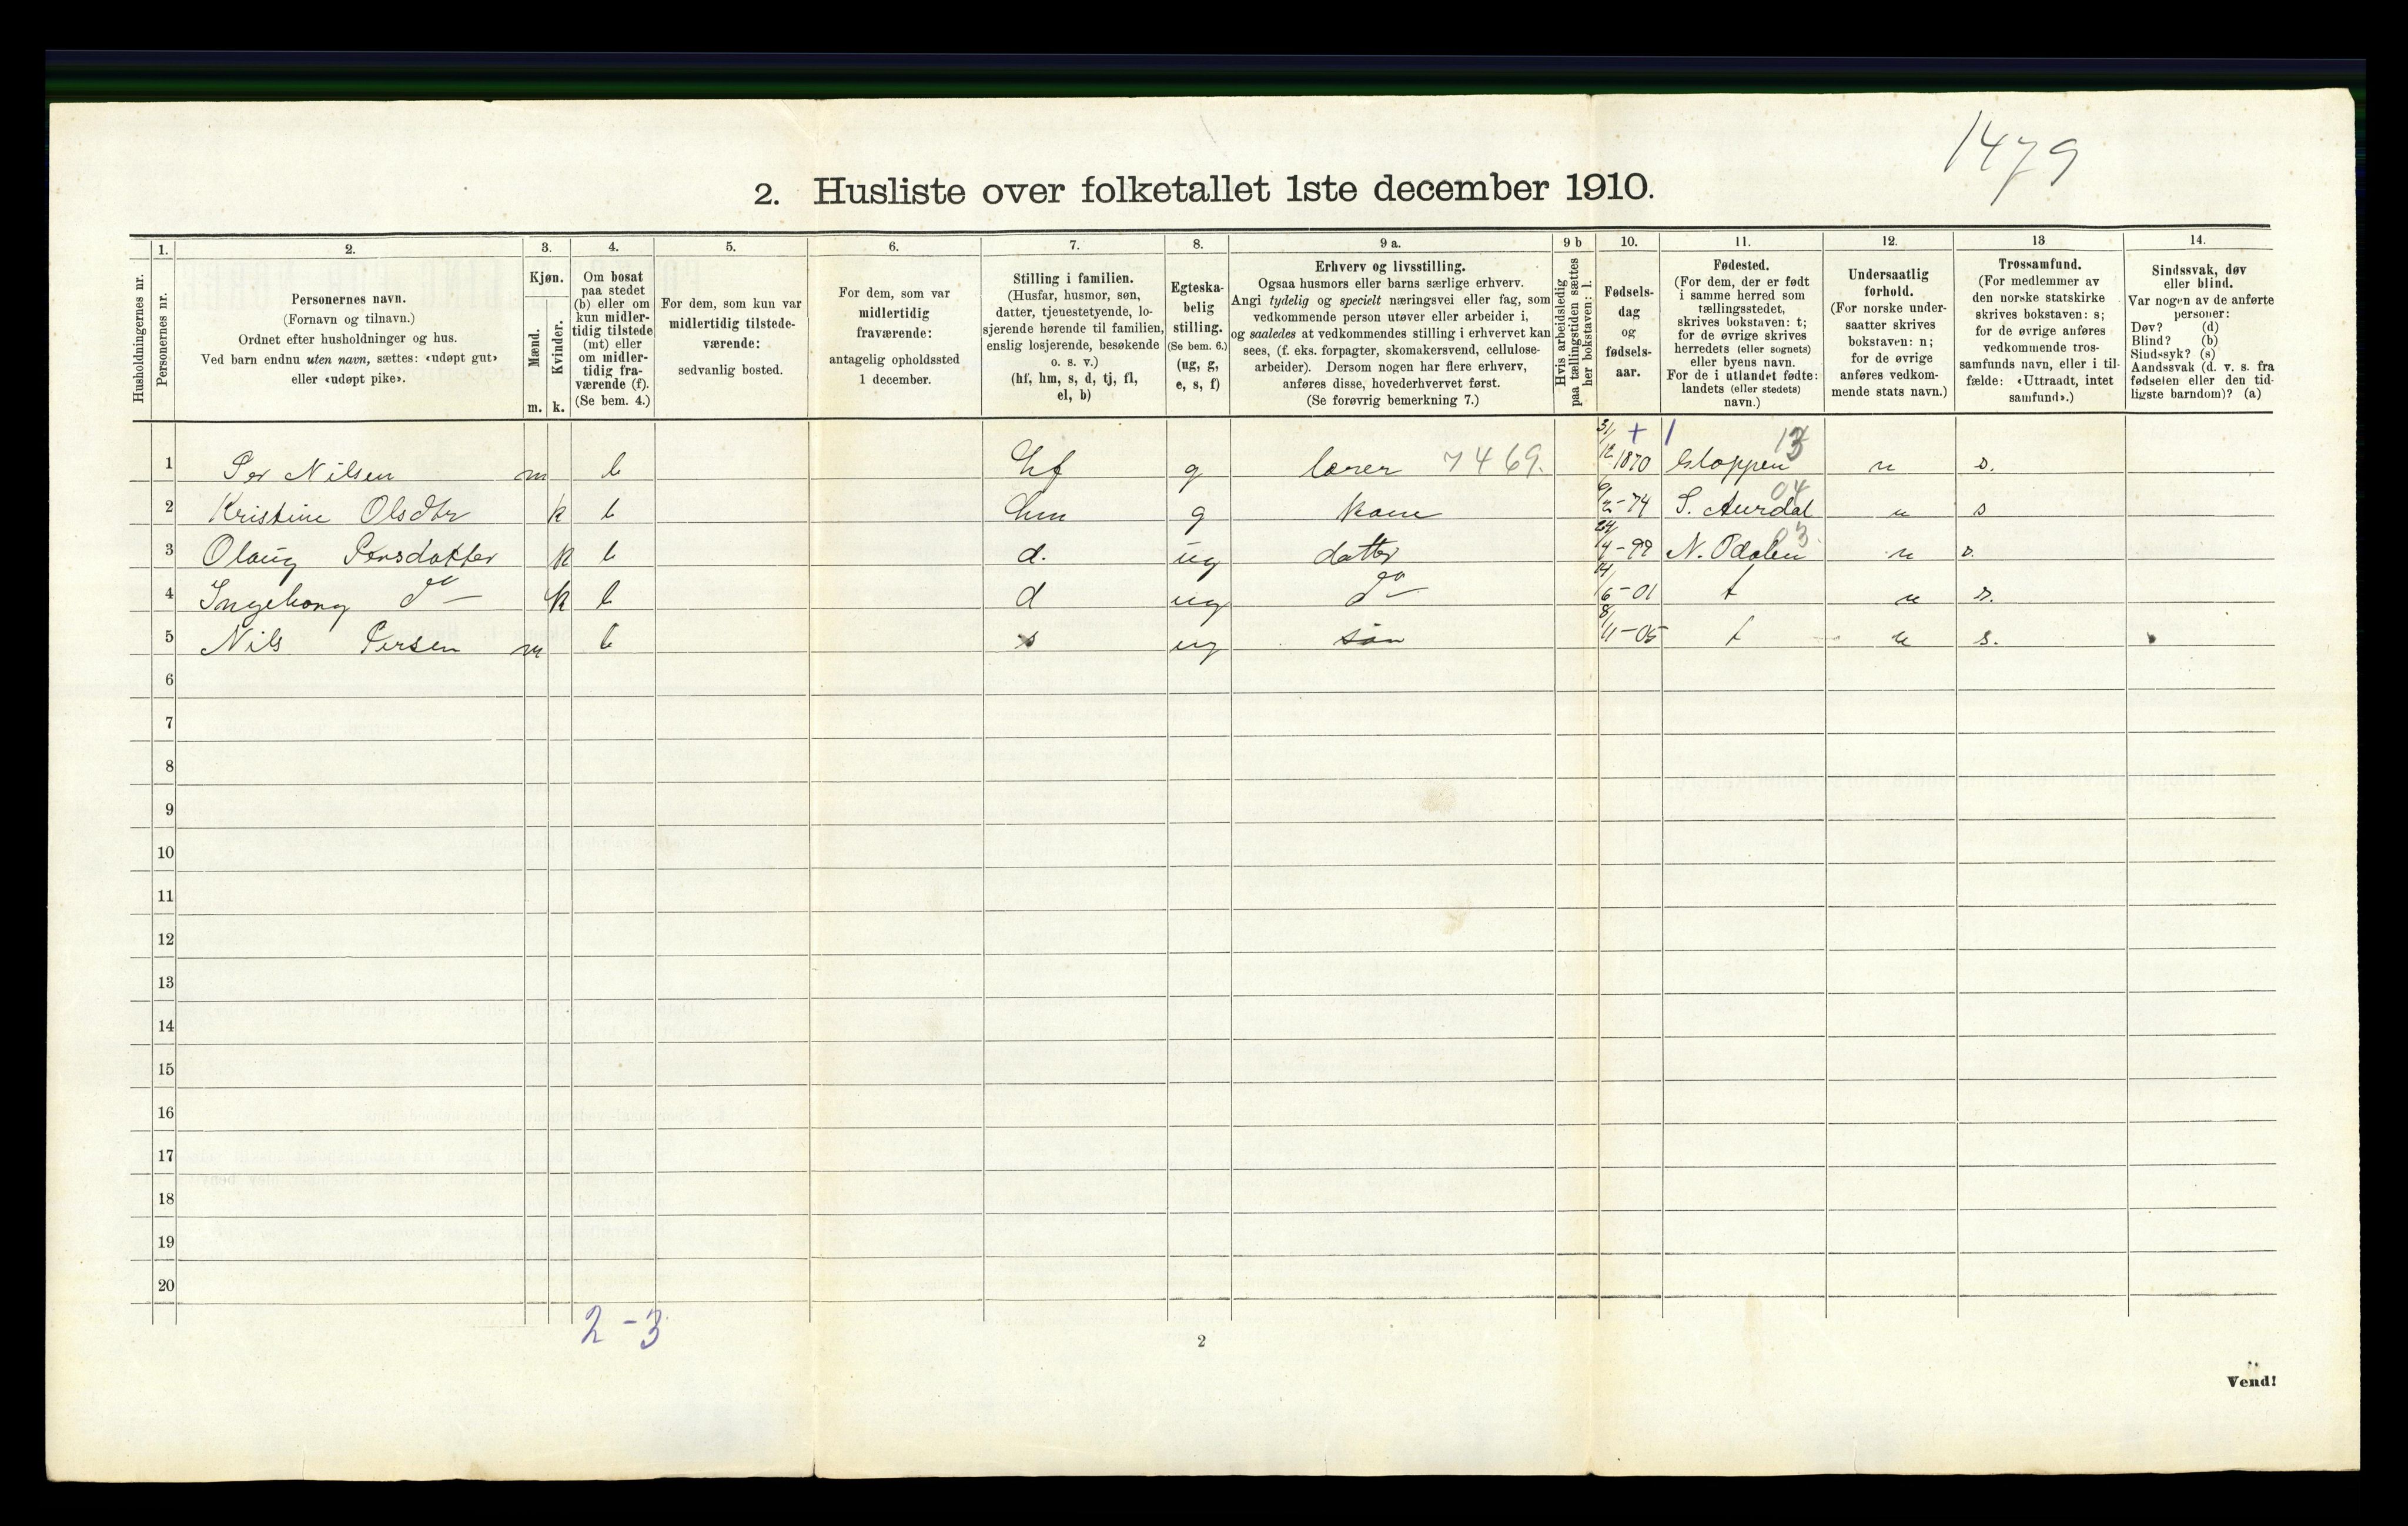 1479
2. Husliste over folketallet 1ste december 1910.
1. 2. 3. 4. 5. 6. 7. 8. 9 a. 9 b 10. 11. 12. 13 14.
Husholdningernes nr.
Personernes nr.
Personernes navn.
(Fornavn og tilnavn.)
Ordnet efter husholdninger og hus.
Ved barn endnu uten navn, sættes: «udøpt gut»
eller «udøpt pike».
Kjøn.
Mænd.
Kvinder.
m. k.
Om bosat
paa stedet
(b) eller om
kun midler-
tidig tilstede
(mt) eller
om midler-
tidig fra-
værende (f).
(Se bem. 4.)
For dem, som kun var
midlertidig tilstede-
værende:
sedvanlig bosted.
For dem, som var
midlertidig
fraværende:
antagelig opholdssted
1 december.
Stilling i familien.
(Husfar, husmor, søn,
datter, tjenestetyende, lo-
sjerende hørende til familien,
enslig losjerende, besøkende
o. s. v.)
(hf, hm, s, d, tj, fl,
el, b)
Egteska-
belig
stilling.
(Se bem. 6.)
(ug, g,
e, s, f)
Erhverv og livsstilling.
Ogsaa husmors eller barns særlige erhverv.
Angi tydelig og specielt næringsvei eller fag, som
vedkommende person utøver eller arbeider i,
og saaledes at vedkommendes stilling i erhvervet kan
sees, (f. eks. forpagter, skomakersvend, cellulose-
arbeider). Dersom nogen har flere erhverv,
anføres disse, hovederhvervet først.
(Se forøvrig bemerkning 7.)
Hvis arbeidsledig
paa tællingstiden sættes
her bokstaven: l.
Fødsels-
dag
og
fødsels-
aar.
Fødested.
(For dem, der er født
i samme herred som
tællingsstedet,
skrives bokstaven: t;
for de øvrige skrives
herredets (eller sognets)
eller byens navn.
For de i utlandet fødte:
landets (eller stedets)
navn.)
Undersaatlig
forhold.
(For norske under-
saatter skrives
bokstaven: n;
for de øvrige
anføres vedkom-
mende stats navn.)
Trossamfund.
(For medlemmer av
den norske statskirke
skrives bokstaven: s;
for de øvrige anføres
vedkommende tros-
samfunds navn, eller i til-
fælde: «Uttraadt, intet
samfund».)
Sindssvak, døv
eller blind.
Var nogen av de anførte
personer:
Døv? (d)
Blind? (b)
Sindssyk? (s)
Aandssvak (d. v. s. fra
fødselen eller den tid-
ligste barndom)? (a)
1 Per Nilsen m b hf g lærer 7469. 31/12 1870 + 1 Gloppen 13 n s.
2 Kristine Olsdtr k b hm g kone 9/2-74 S. Aurdal 04 n s
3 Olaug Persdatter k b d. ug datter 24/4-99 N. Odalen 03. n s.
4 Ingeborg do k b d ug do 14/6-01 t n s.
5 Nils Persen m b s ug søn 8/11-05 t n s.
6
7
8
9
10
11
12
13
14
15
16
17
18
19
20
2-3
2
Vend!